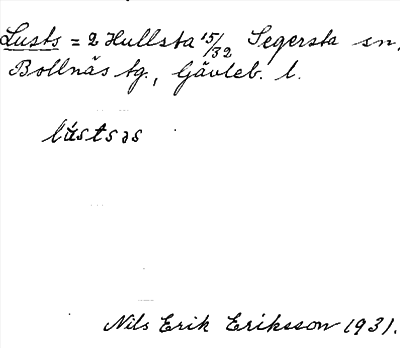 Lusts = 2 Hullsta 15/32 Segersta sn.
Bollnäs tg., Gävleb. l.
lústsɘs
Nils Erik Eriksson 1931.